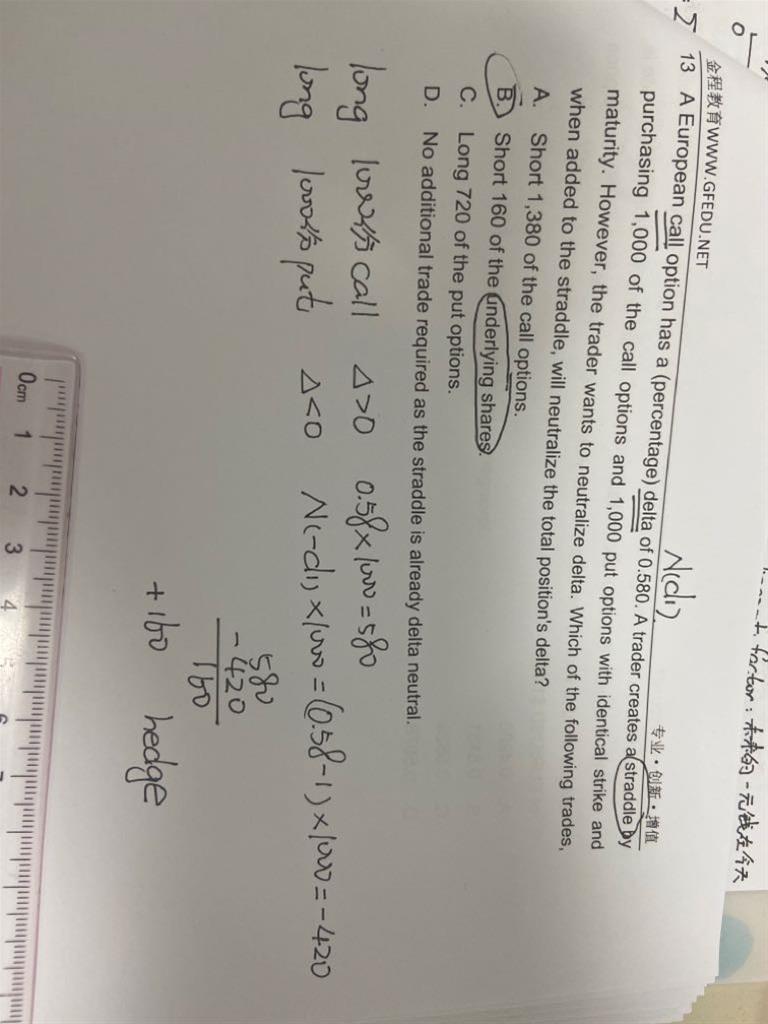 金程教育WWW.GFEDU.NET
专业·创新·增值
N(d1)
13 A European call option has a (percentage) delta of 0.580. A trader creates a straddle by
purchasing 1,000 of the call options and 1,000 put options with identical strike and
maturity. However, the trader wants to neutralize delta. Which of the following trades,
when added to the straddle, will neutralize the total position's delta?
A. Short 1,380 of the call options.
B. Short 160 of the underlying shares.
C. Long 720 of the put options.
D. No additional trade required as the straddle is already delta neutral.
long 1000份 call Δ>0 0.58×1000=580
long 1000份 put Δ<0 N(-d1)×1000=(0.58-1)×1000=-420
580
-420
160
+160 hedge
0cm 1 2 3 4
factor:未来的一元钱在今天